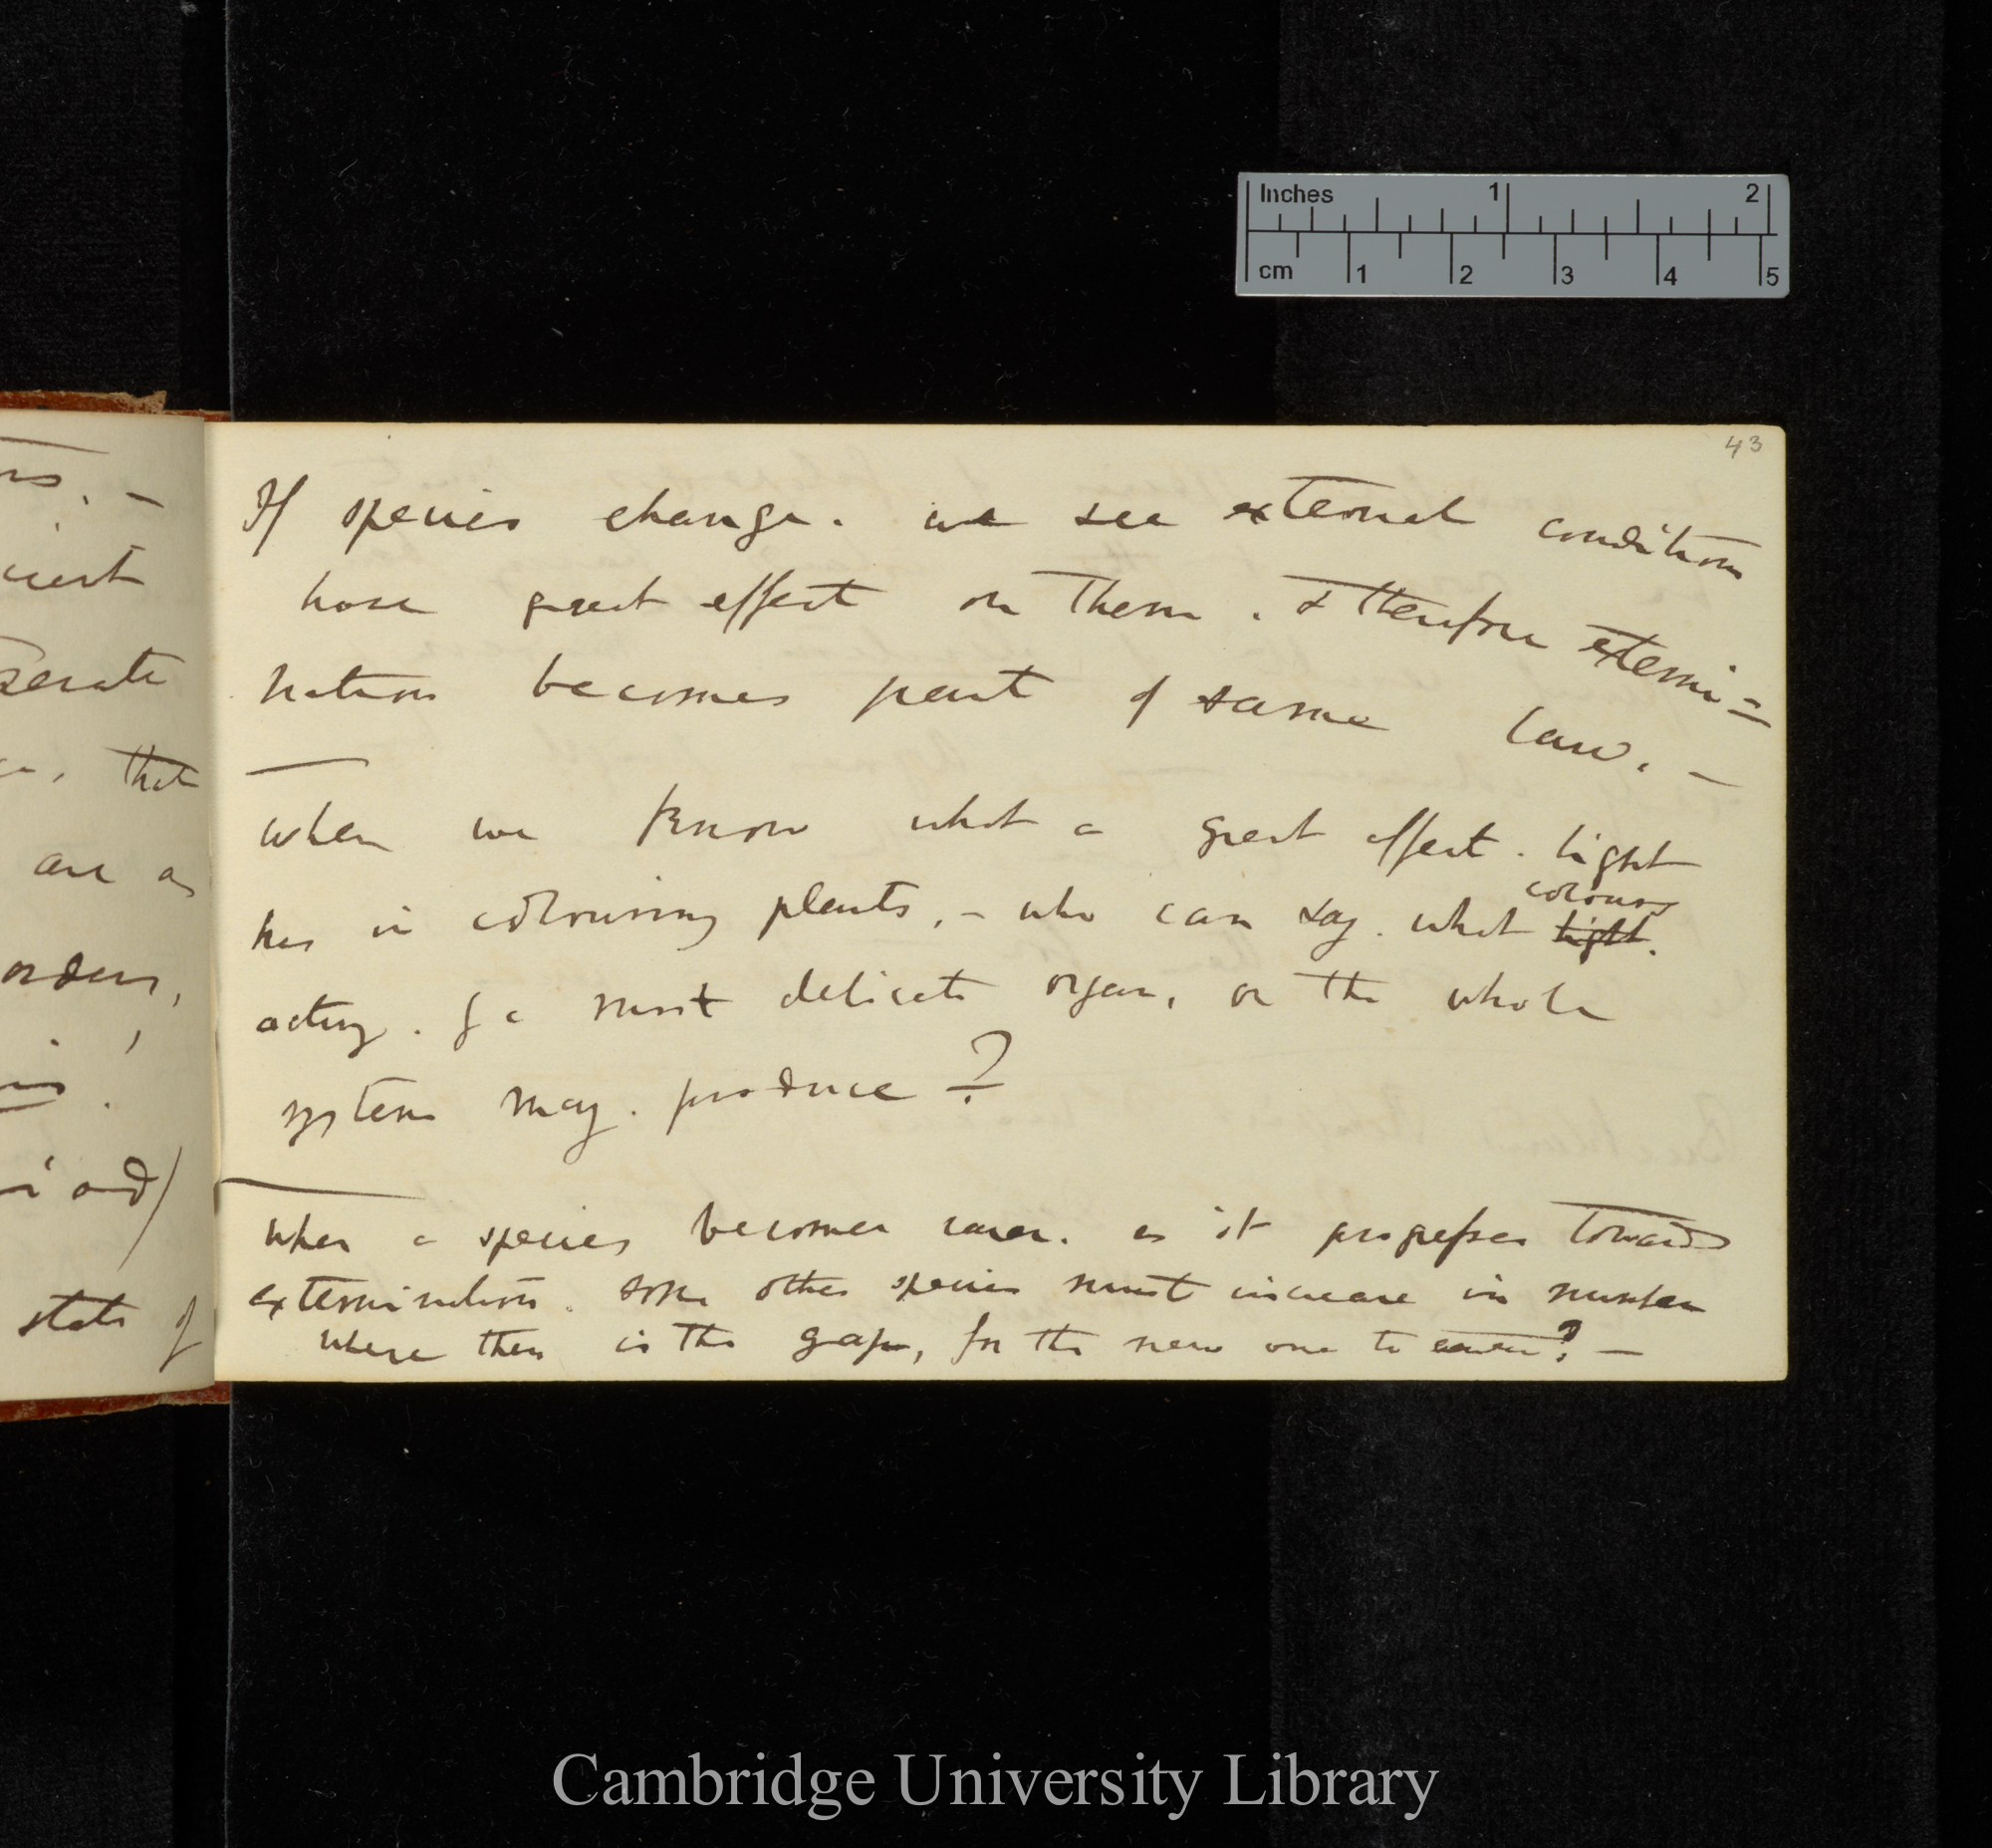 43
If species change. we see external conditions
have great effect on them. & therefore extermi=
nation becomes part of same law. —
when we know what a great effect. light
has in colouring plants, — who can say. what light.
colours
acting. on a most delicate organ, or the whole
system may. produce?
When a species becomes rarer. as it progresses towards
extermination. some other species must increase in number
where then is the gap, for the new one to enter? —
ient
that
are as
orders,
state of
Inches 1 2
cm 1 2 3 4 5
Cambridge University Library